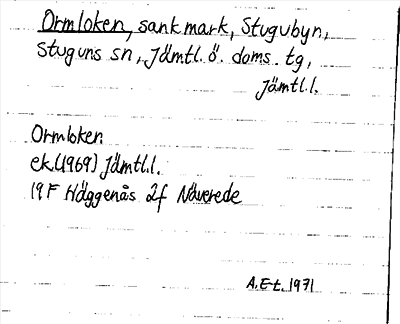 Ormloken, sankmark, Stugubyn,
Stuguns sn, Jämtl. ö. doms. tg,
Jämtl. l.
Ormloken
ek. (1969) Jämtl. l.
19F Häggenås 2f Näverede
A. E-t. 1971